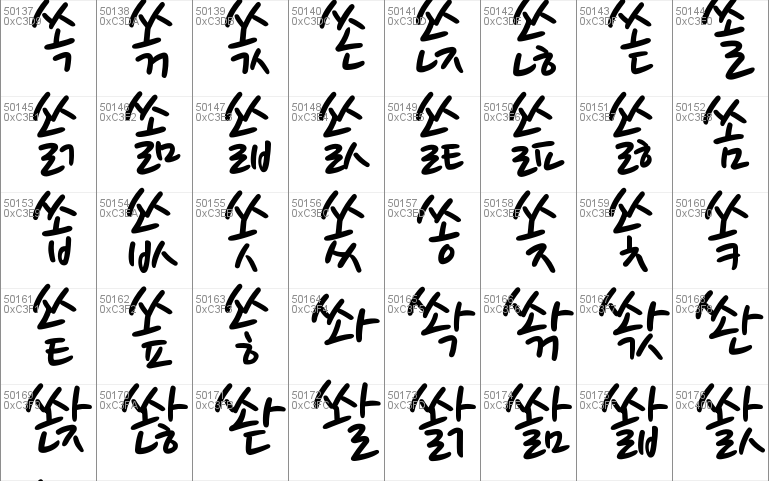 50137 50138 50139 50140 50141 50142 50143 50144
0xC3D9 0xC3DA 0xC3DB 0xC3DC 0xC3DD 0xC3DE 0xC3DF 0xC3E0
쏙 쏚 쏛 쏜 쏝 쏞 쏟 쏠
50145 50146 50147 50148 50149 50150 50151 50152
0xC3E1 0xC3E2 0xC3E3 0xC3E4 0xC3E5 0xC3E6 0xC3E7 0xC3E8
쏡 쏢 쏣 쏤 쏥 쏦 쏧 쏨
50153 50154 50155 50156 50157 50158 50159 50160
0xC3E9 0xC3EA 0xC3EB 0xC3EC 0xC3ED 0xC3EE 0xC3EF 0xC3F0
쏩 쏪 쏫 쏬 쏭 쏮 쏯 쏰
50161 50162 50163 50164 50165 50166 50167 50168
0xC3F1 0xC3F2 0xC3F3 0xC3F4 0xC3F5 0xC3F6 0xC3F7 0xC3F8
쏱 쏲 쏳 쏴 쏵 쏶 쏷 쏸
50169 50170 50171 50172 50173 50174 50175 50176
0xC3F9 0xC3FA 0xC3FB 0xC3FC 0xC3FD 0xC3FE 0xC3FF 0xC400
쏹 쏺 쏻 쏼 쏽 쏾 쏿 쐀